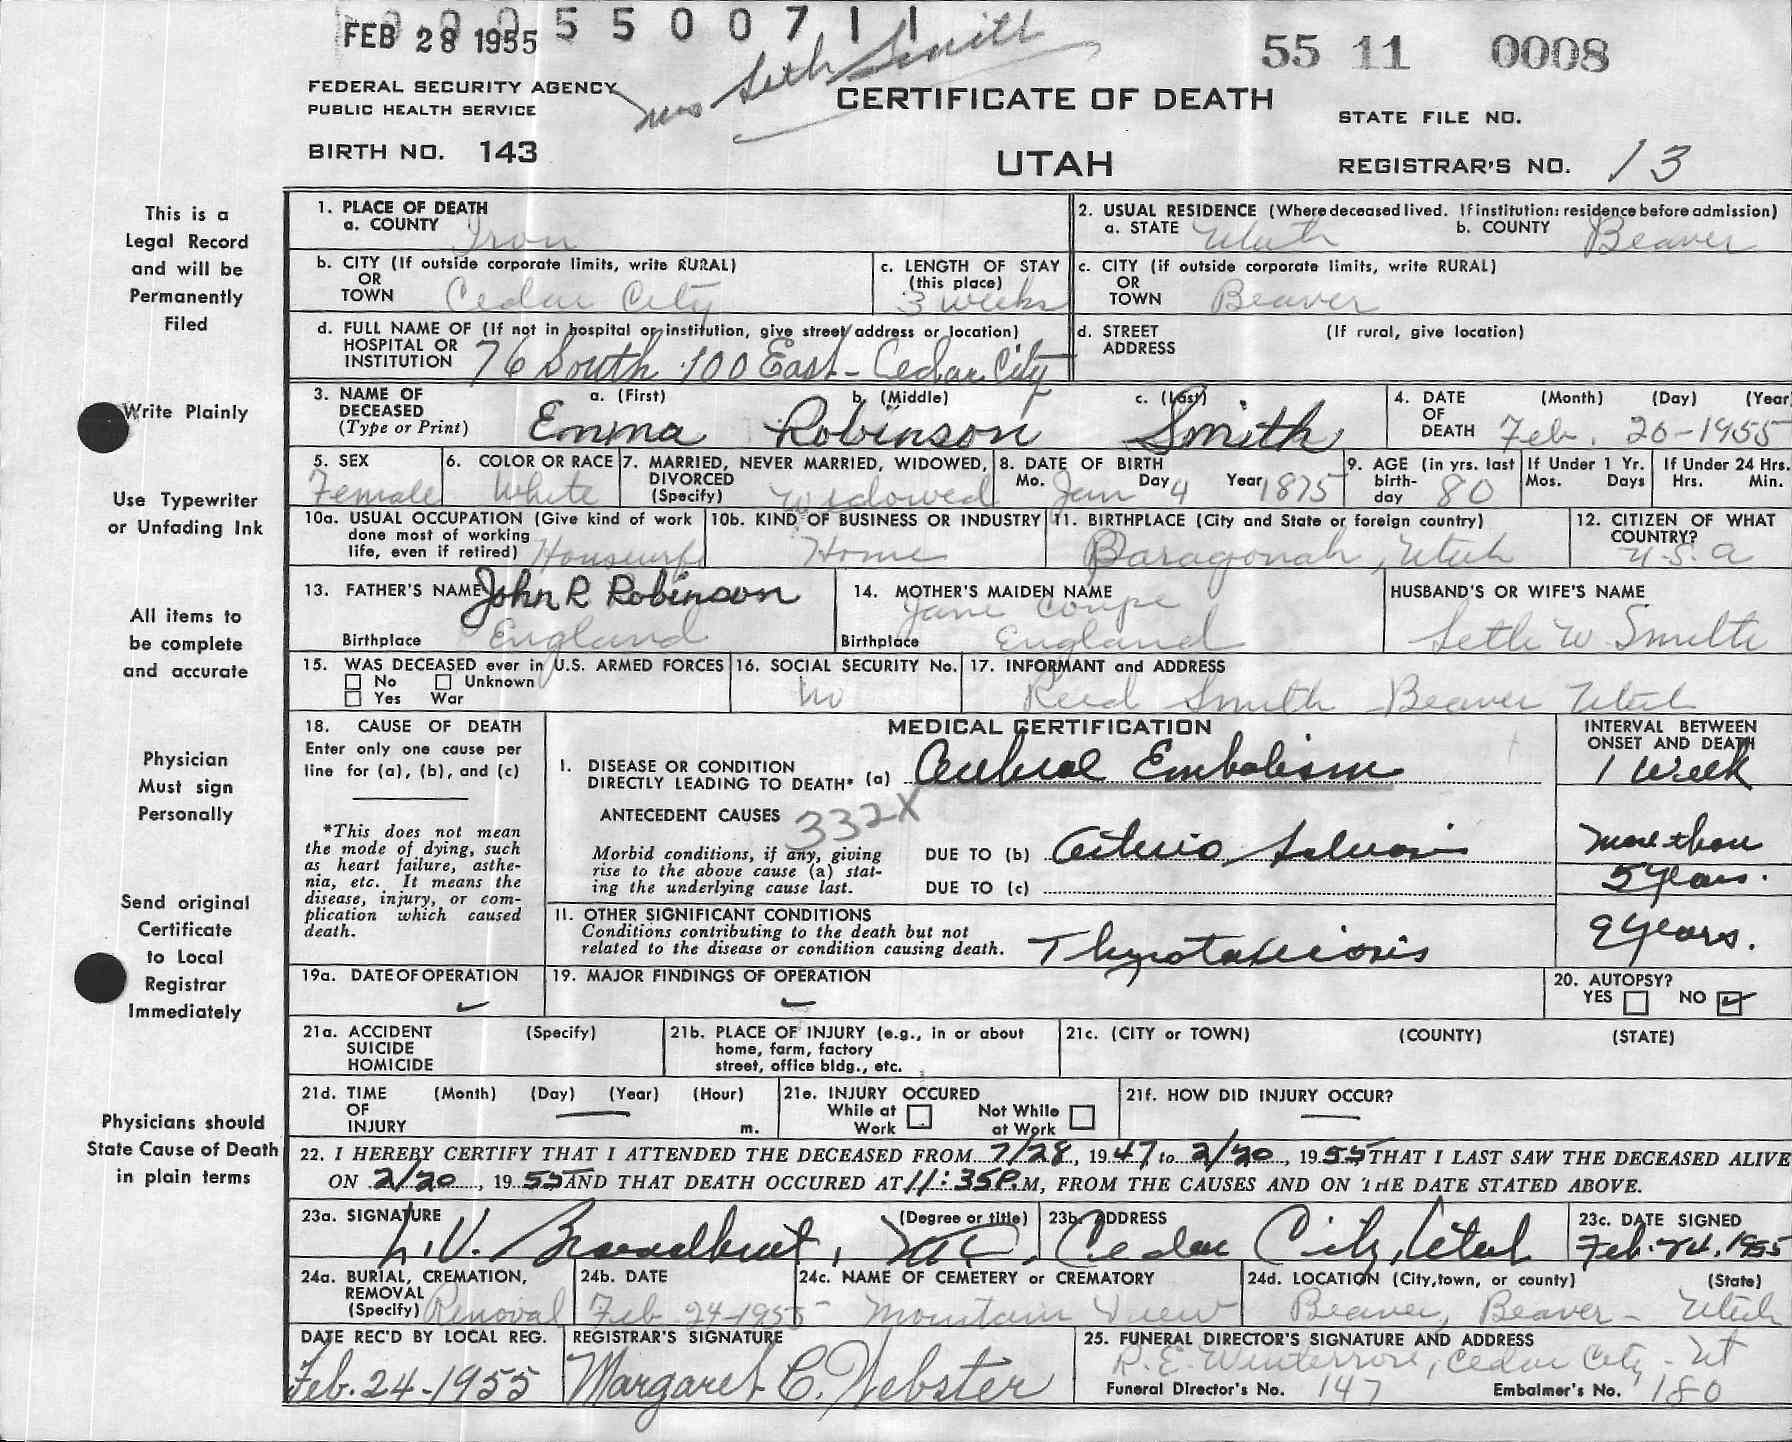 FEB 28 1955 5 5 0 0 7 1 1
Mrs Seth Smith
55 11 0008
FEDERAL SECURITY AGENCY
PUBLIC HEALTH SERVICE
CERTIFICATE OF DEATH
STATE FILE NO.
BIRTH NO. 143
UTAH
REGISTRAR'S NO. 13
This is a
Legal Record
and will be
Permanently
Filed
Write Plainly
Use Typewriter
or Unfading Ink
All items to
be complete
and accurate
Physician
Must sign
Personally
Send original
Certificate
to Local
Registrar
Immediately
Physicians should
State Cause of Death
in plain terms
1. PLACE OF DEATH
a. COUNTY Iron
2. USUAL RESIDENCE (Where deceased lived. If institution: residence before admission)
a. STATE Utah b. COUNTY Beaver
b. CITY (If outside corporate limits, write RURAL)
OR
TOWN Cedar City
c. LENGTH OF STAY
(this place)
3 weeks
c. CITY (if outside corporate limits, write RURAL)
OR
TOWN Beaver
d. FULL NAME OF (If not in hospital or institution, give street address or location)
HOSPITAL OR
INSTITUTION 76 South 100 East - Cedar City
d. STREET (If rural, give location)
ADDRESS
3. NAME OF a. (First) b. (Middle) c. (Last)
DECEASED
(Type or Print) Emma Robinson Smith
4. DATE (Month) (Day) (Year
OF
DEATH Feb. 20-1955
5. SEX
Female
6. COLOR OR RACE
White
7. MARRIED, NEVER MARRIED, WIDOWED,
DIVORCED
(Specify) Widowed
8. DATE OF BIRTH
Mo. Jan Day 4 Year 1875
9. AGE (in yrs. last
birth-
day 80
If Under 1 Yr.
Mos. Days
If Under 24 Hrs.
Hrs. Min.
10a. USUAL OCCUPATION (Give kind of work
done most of working
life, even if retired) Housewife
10b. KIND OF BUSINESS OR INDUSTRY
Home
11. BIRTHPLACE (City and State or foreign country)
Paragonah, Utah
12. CITIZEN OF WHAT
COUNTRY?
U.S.A
13. FATHER'S NAME John R Robinson
Birthplace England
14. MOTHER'S MAIDEN NAME
Jane Coupe
Birthplace England
HUSBAND'S OR WIFE'S NAME
Seth W Smith
15. WAS DECEASED ever in U.S. ARMED FORCES
No Unknown
Yes War
16. SOCIAL SECURITY No.
No
17. INFORMANT and ADDRESS
Reed Smith Beaver Utah
18. CAUSE OF DEATH
Enter only one cause per
line for (a), (b), and (c)
*This does not mean
the mode of dying, such
as heart failure, asthe-
nia, etc. It means the
disease, injury, or com-
plication which caused
death.
MEDICAL CERTIFICATION
INTERVAL BETWEEN
ONSET AND DEATH
I. DISEASE OR CONDITION
DIRECTLY LEADING TO DEATH* (a) Cerebral Embolism
1 Week
ANTECEDENT CAUSES 332X
Morbid conditions, if any, giving
rise to the above cause (a) stat-
ing the underlying cause last.
DUE TO (b) Arterio Sclerosis
More than
5 years.
DUE TO (c)
II. OTHER SIGNIFICANT CONDITIONS
Conditions contributing to the death but not
related to the disease or condition causing death.
Thyrotoxicosis
9 years.
19a. DATE OF OPERATION
19. MAJOR FINDINGS OF OPERATION
20. AUTOPSY?
YES NO
21a. ACCIDENT (Specify)
SUICIDE
HOMICIDE
21b. PLACE OF INJURY (e.g., in or about
home, farm, factory
street, office bldg., etc.
21c. (CITY or TOWN) (COUNTY) (STATE)
21d. TIME (Month) (Day) (Year) (Hour)
OF
INJURY m.
21e. INJURY OCCURED
While at
Work
Not While
at Work
21f. HOW DID INJURY OCCUR?
22. I HEREBY CERTIFY THAT I ATTENDED THE DECEASED FROM 7/28, 1947, to 2/20, 1955 THAT I LAST SAW THE DECEASED ALIVE
ON 2/20, 1955 AND THAT DEATH OCCURED AT 11:35P.M, FROM THE CAUSES AND ON THE DATE STATED ABOVE.
23a. SIGNATURE (Degree or title)
L.V. Broadbent, M.D.
23b. ADDRESS
Cedar City, Utah
23c. DATE SIGNED
Feb. 24, 1955
24a. BURIAL, CREMATION,
REMOVAL
(Specify) Removal
24b. DATE
Feb. 24-1955
24c. NAME OF CEMETERY or CREMATORY
Mountain View
24d. LOCATION (City, town, or county) (State)
Beaver, Beaver - Utah
DATE REC'D BY LOCAL REG.
Feb. 24-1955
REGISTRAR'S SIGNATURE
Margaret C. Webster
25. FUNERAL DIRECTOR'S SIGNATURE AND ADDRESS
R.E. Winterrose, Cedar City - Ut
Funeral Director's No. 147 Embalmer's No. 180